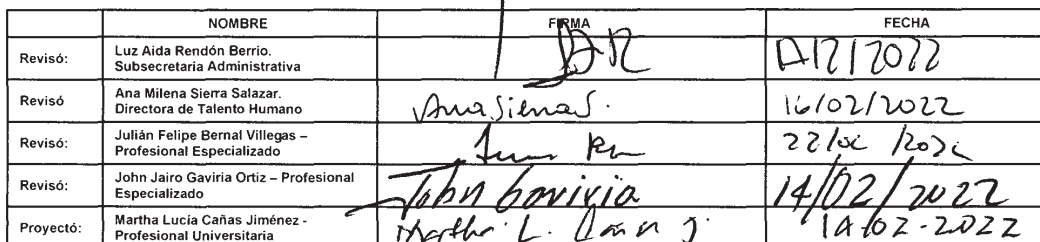 NOMBRE FIRMA FECHA
Revisó: Luz Aida Rendón Berrio.
Subsecretaria Administrativa
Revisó Ana Milena Sierra Salazar.
Directora de Talento Humano
Ana Sierra S. 16/02/2022
Revisó: Julián Felipe Bernal Villegas –
Profesional Especializado
Revisó: John Jairo Gaviria Ortiz – Profesional
Especializado
John Gaviria 14/02/2022
Proyectó: Martha Lucía Cañas Jiménez -
Profesional Universitaria
Martha L. Cañas J. 14-02-2022